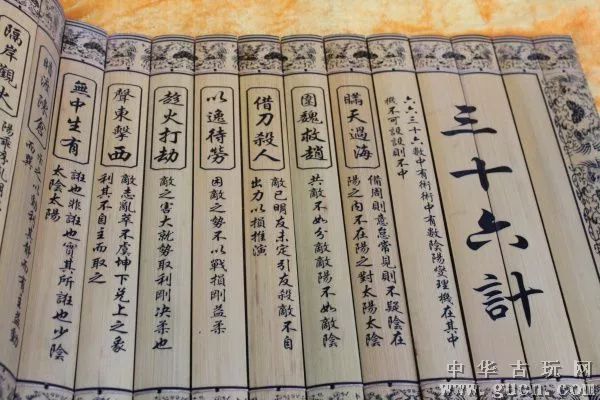 三十六計
六六三十六數中有術術中有數陰陽燮理機在其中
機不可設設則不中
瞞天過海
備周則意怠常見則不疑陰在
陽之內不在陽之對太陽太陰
圍魏救趙
共敵不如分敵敵陽不如敵陰
借刀殺人
敵已明友未定引友殺敵不自
出力以損推演
以逸待勞
困敵之勢不以戰損剛益柔
趁火打劫
敵之害大就勢取利剛決柔也
聲東擊西
敵志亂萃不虞坤下兌上之象
利其不自主而取之
無中生有
誑也非誑也實其所誑也少陰
太陰太陽
陳倉
隔岸觀火
陽乖序亂
中华古玩网
www.gucn.com